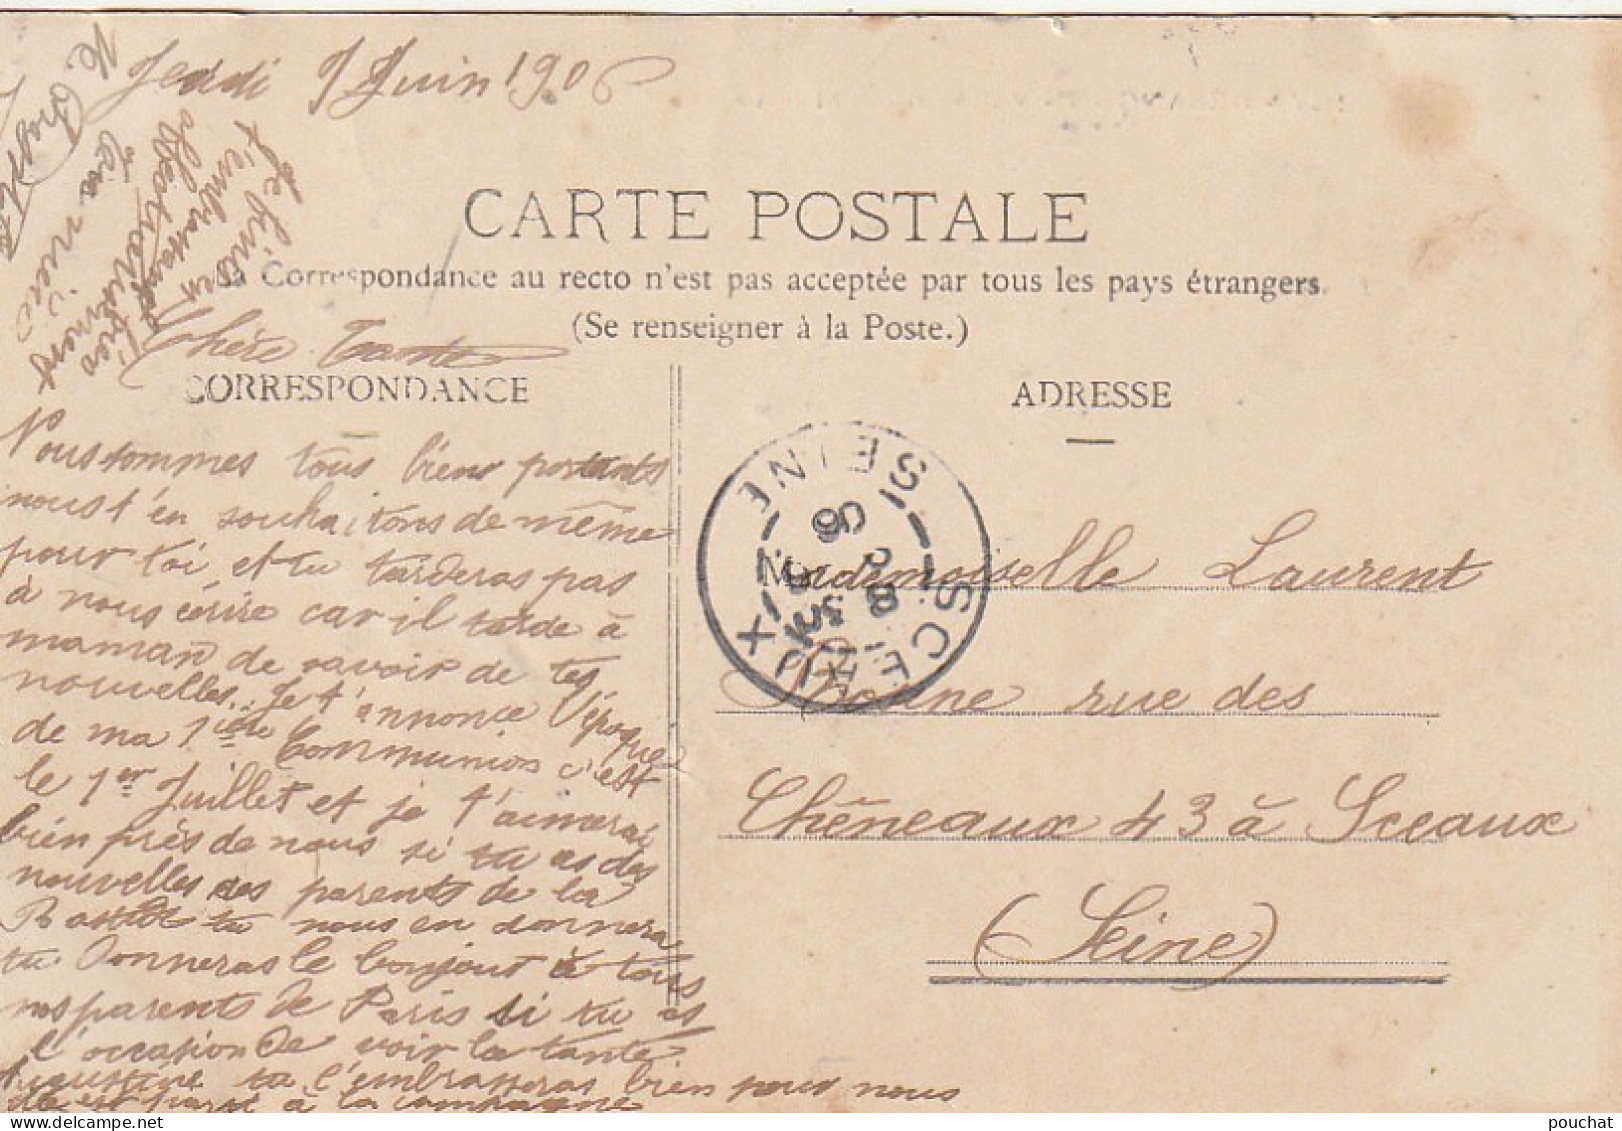 Jeudi 7 Juin 1906
CARTE POSTALE
La Correspondance au recto n'est pas acceptée par tous les pays étrangers.
(Se renseigner à la Poste.)
CORRESPONDANCE
ADRESSE
Chère Tante
Nous sommes tous bien portants
nous t'en souhaitons de même
pour toi, et tu tarderas pas
à nous écrire car il tarde à
maman de savoir de tes
nouvelles. Je t'annonce l'époque
de ma 1ière Communion c'est
le 1er Juillet et je t'aimerai
bien près de nous si tu as des
nouvelles des parents de la
tu nous en donnera
tu donneras le bonjour à tous
nos parents de Paris si tu as
l'occasion de voir la tante
Augustine tu l'embrasseras bien pour nous
à la campagne
Je finis en
t'embrassant bien
affectueusement
Ta nièce
SCEAUX SEINE
8 JUIN
06
Mademoiselle Laurent
rue des
Chêneaux 43 à Sceaux
(Seine)
pouchat